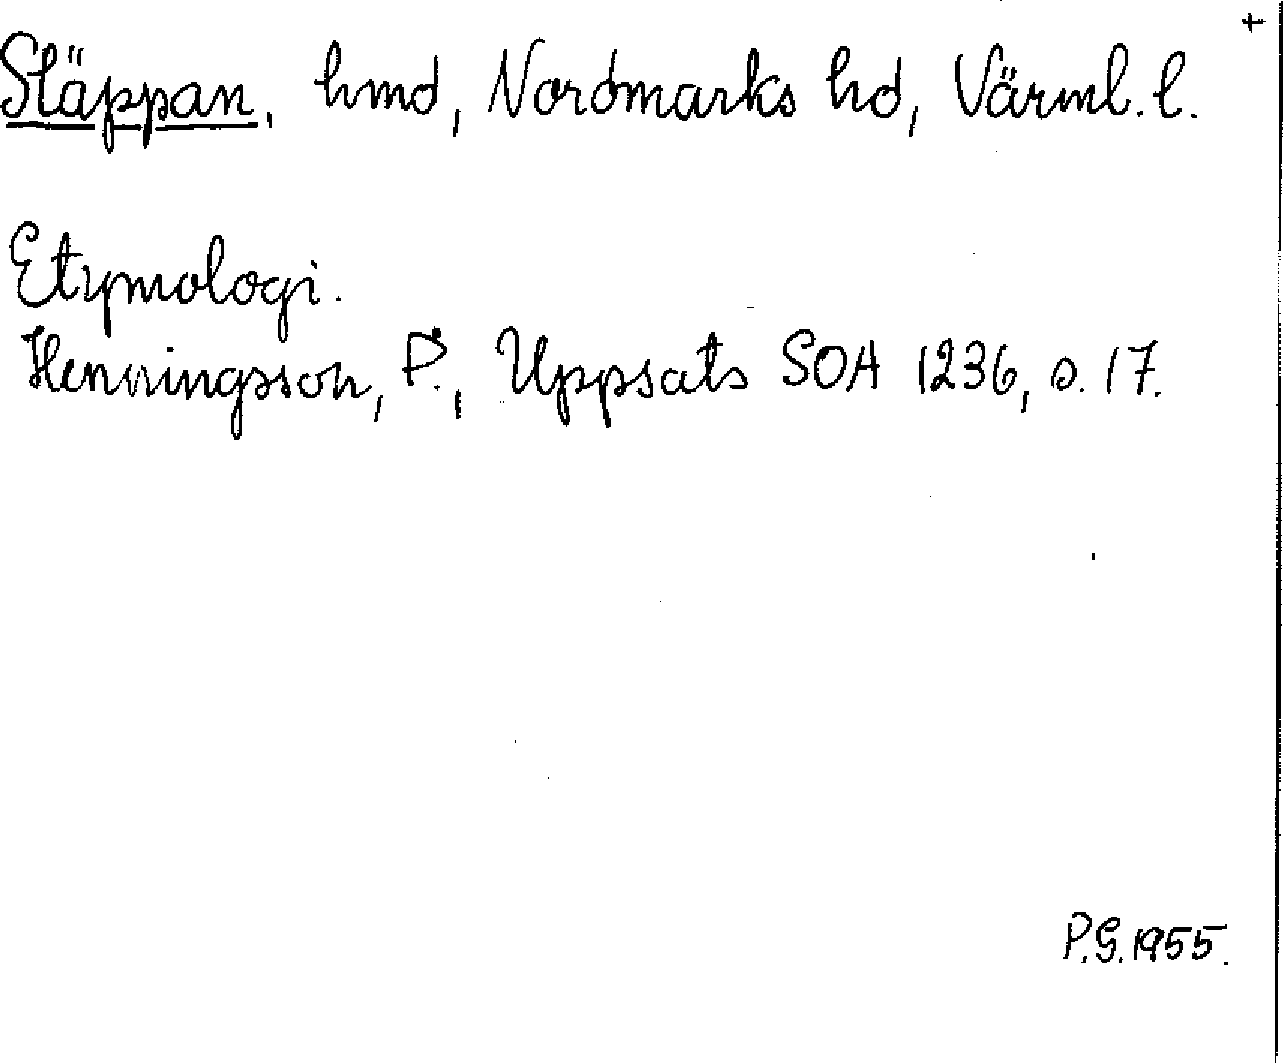 +
Släppan, hmd, Nordmarks hd, Värml. l.
Etymologi.
Henningsson, P., Uppsats SOA 1236, s. 17.
P.G. 1955.